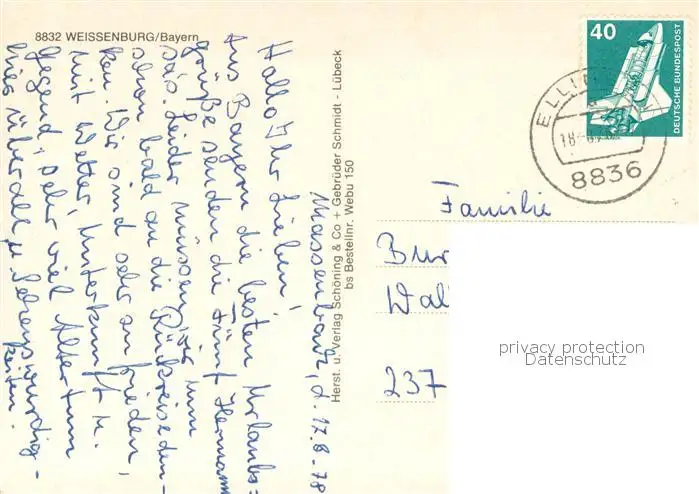 8832 WEISSENBURG/Bayern
Massenbach, d. 17.8.78
Hallo Ihr Lieben!
Aus Bayern die besten Urlaubs=
grüße senden die fünf Hermann
sas. Leider müssen wir nun
schon bald an die Rückreise den-
ken. Wir sind sehr zufrieden,
mit Wetter, Unterkunft u.
Gegend, sehr viel Altertum
hier überall u. Sehenswürdig-
keiten.
Herst. u. Verlag Schöning & Co + Gebrüder Schmidt - Lübeck
bs Bestellnr. Webu 150
40
DEUTSCHE BUNDESPOST
8836
Familie
Bur
Wal
237
privacy protection
Datenschutz